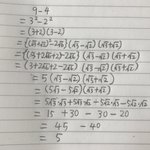 9-4
= 3²-2²
= (3+2)(3-2)
= {(√3+√2)²-2√6} (√3-√2) (√3+√2)
= {(3+2√6+2)-2√6} (√3-√2) (√3+√2)
= (3+2√6+2-2√6) (√3-√2) (√3+√2)
= 5 (√3-√2) (√3+√2)
= (5√3-5√2) (√3+√2)
= 5√3√3+5√3√2-5√2√3-5√2√2
= 15 +30 -30 -20
= 45 -40
= 5